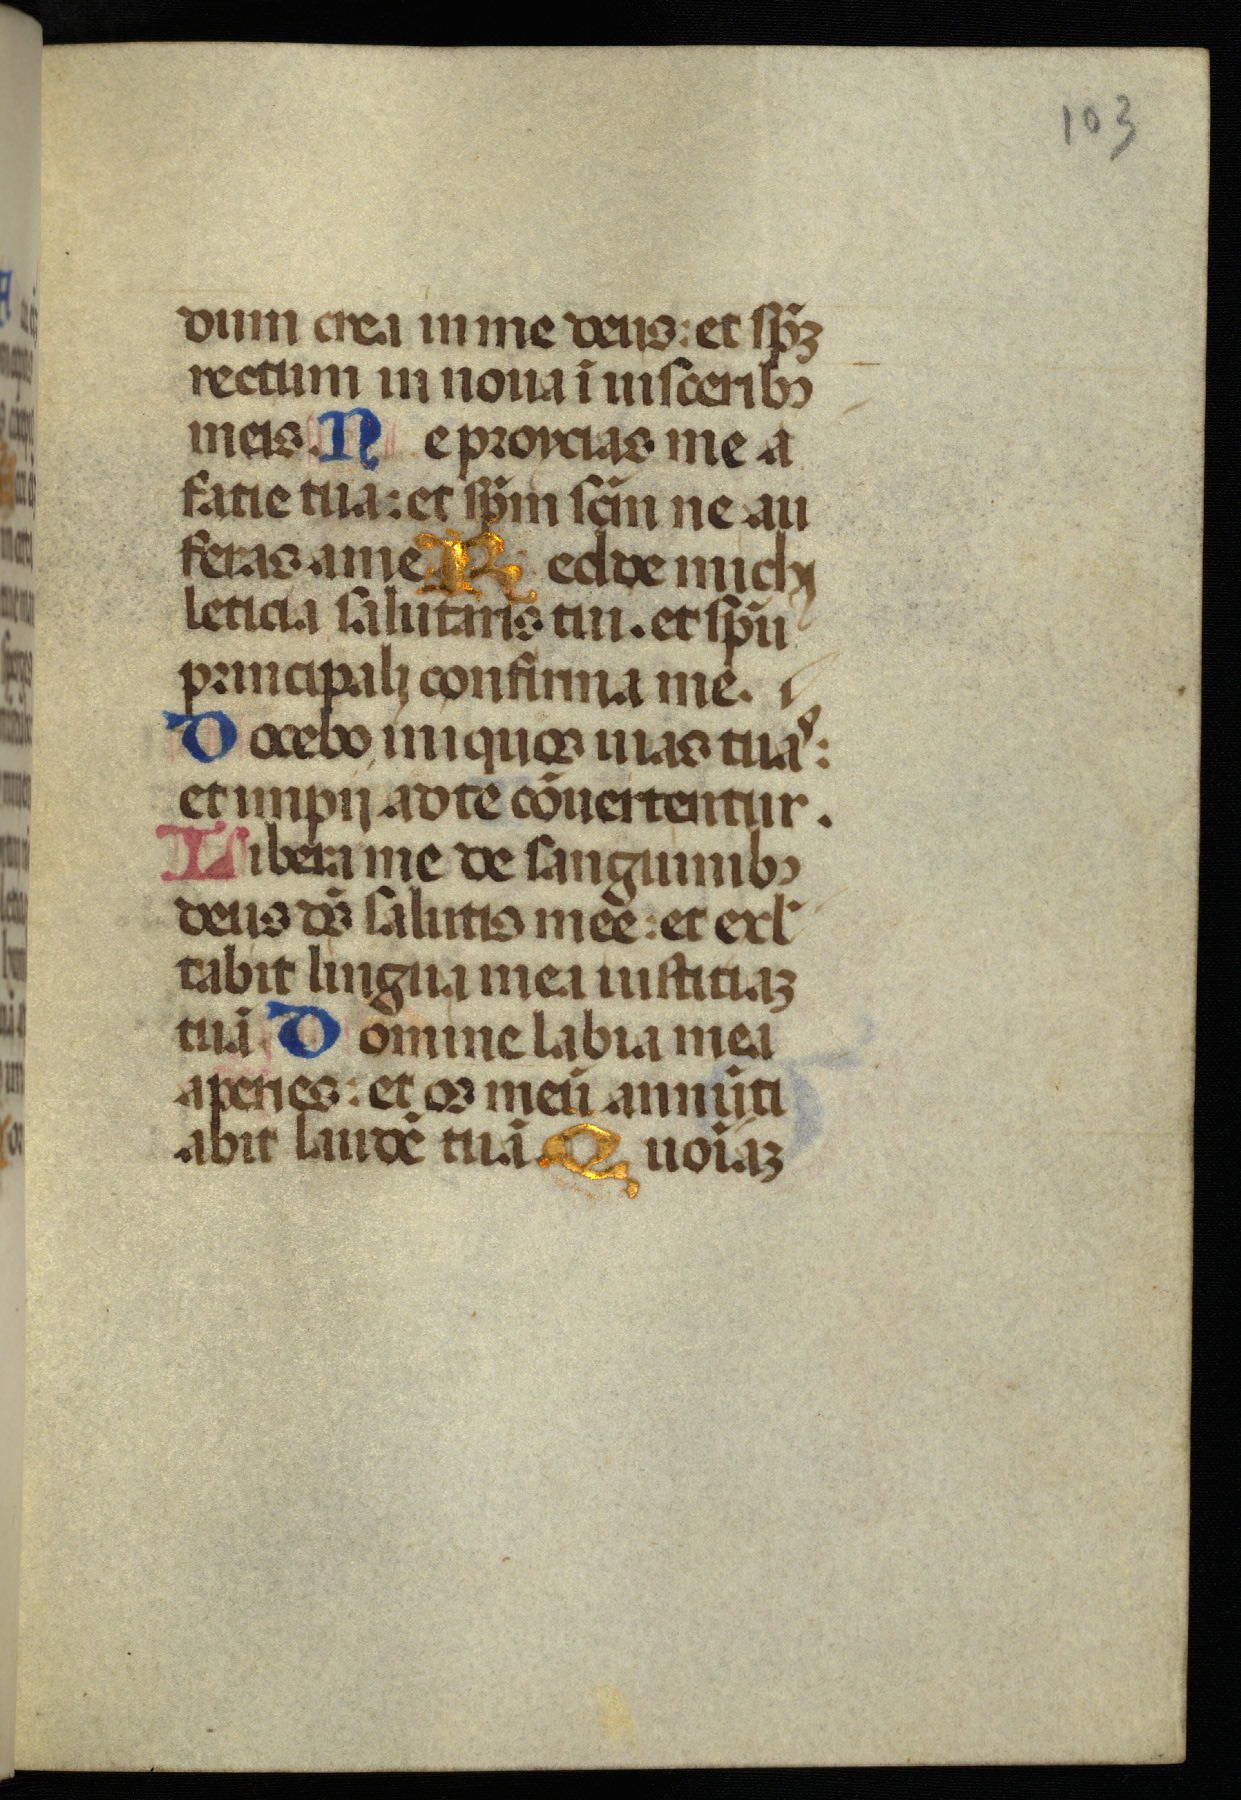 103
dium crea in me deus: et sp̄ʒ
rectum in noua ī uisceribꝰ
meis. N e proycias me a
facie tua: et sp̄m sc̄m ne au
feras a me R edde michi
leticia salutaris tui. et sp̄u
principali confirma me.
D ocebo iniquos uias tuas:
et impij ad te cōuertentur.
L ibera me de sanguinibꝰ
deus dꝰs salutis mee: et exl
tabit lingua mea iustitiaʒ
tuā D omine labia mea
aperies: et os meū annūti
abit laudē tuā. Q uoīaʒ